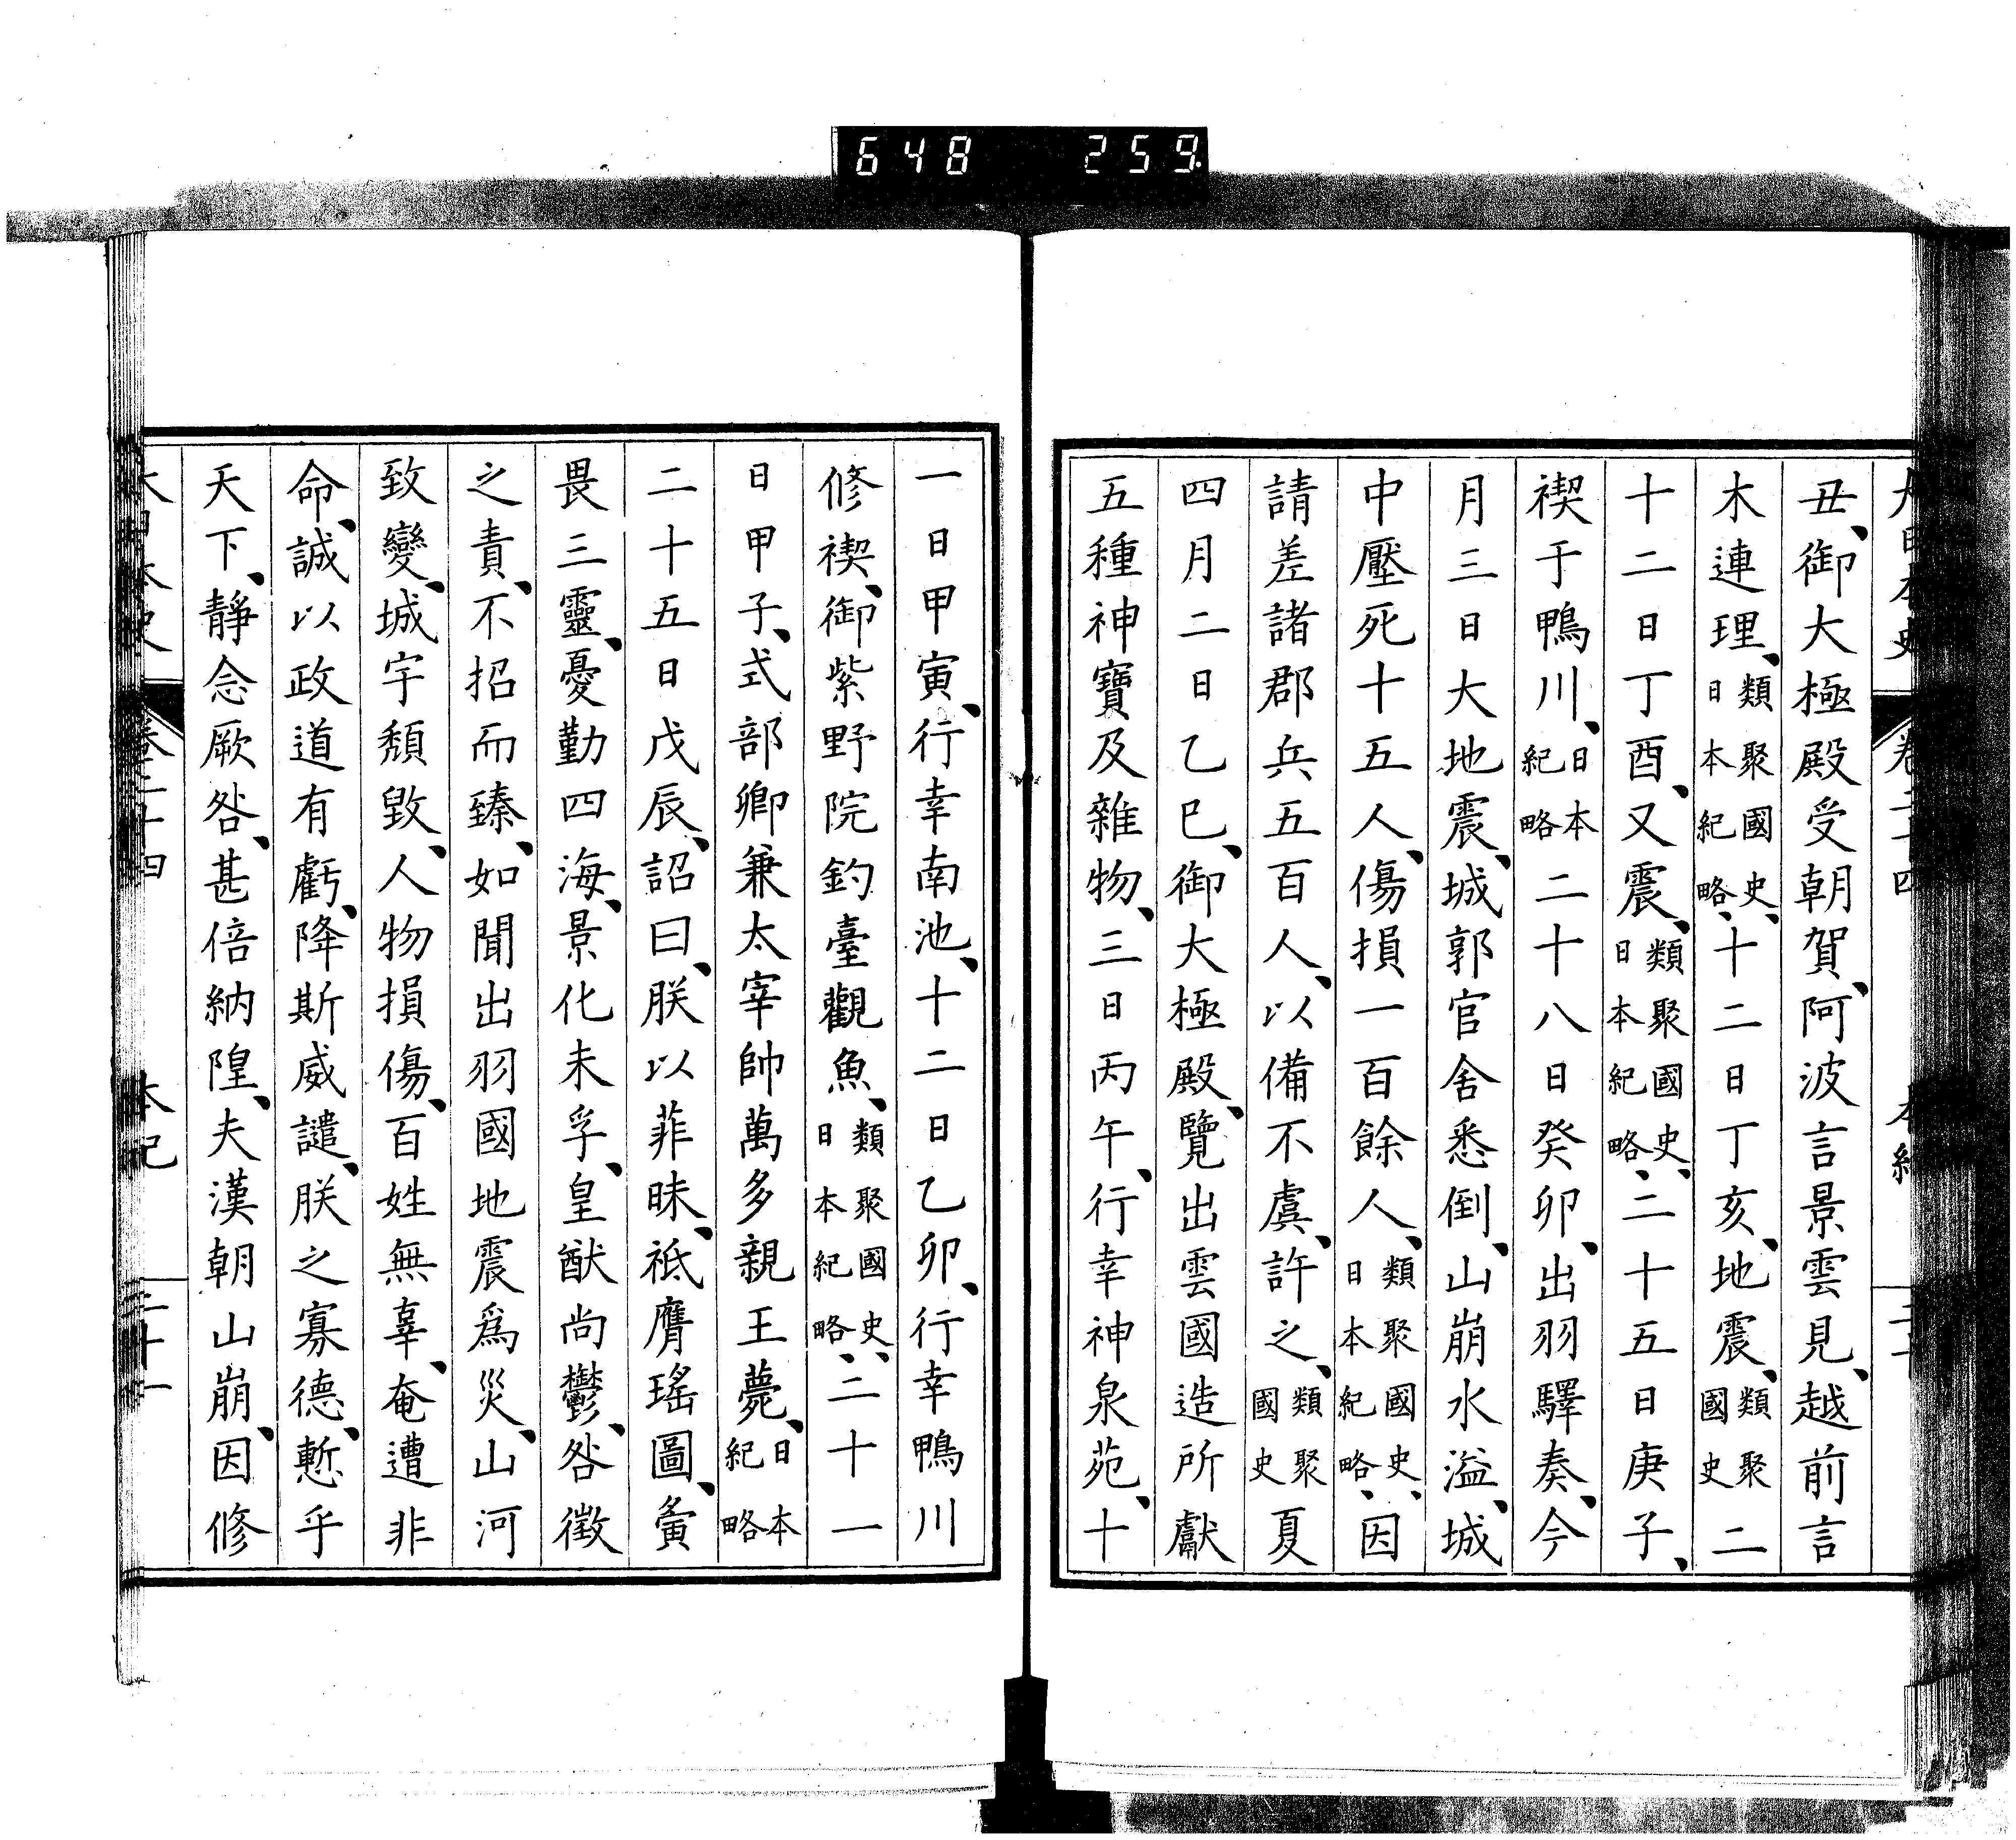 648 259
丑、御大極殿受朝賀、阿波言景雲見、越前言
木連理、類聚國史、日本紀略、十二日丁亥、地震、類聚國史二
十二日丁酉、又震、類聚國史、日本紀略、二十五日庚子、
禊于鴨川、日本紀略二十八日癸卯、出羽驛奏、今
月三日大地震、城郭官舍悉倒、山崩水溢、城
中壓死十五人、傷損一百餘人、類聚國史、日本紀略、因
請差諸郡兵五百人、以備不虞、許之、類聚國史夏
四月二日乙巳、御大極殿、覽出雲國造所獻
五種神寶及雜物、三日丙午、行幸神泉苑、十
一日甲寅、行幸南池、十二日乙卯、行幸鴨川
修禊、御紫野院釣臺觀魚、類聚國史、日本紀略、二十一
日甲子、式部卿兼太宰帥萬多親王薨、日本紀略
二十五日戊辰、詔曰、朕以菲昧、祗膺瑤圖、夤
畏三靈、憂勤四海、景化未孚、皇猷尚鬱、咎徵
之責、不招而臻、如聞出羽國地震爲災、山河
致變、城宇頽毀、人物損傷、百姓無辜、奄遭非
命、誠以政道有虧、降斯威譴、朕之寡德、慙乎
天下、靜念厥咎、甚倍納隍、夫漢朝山崩、因修